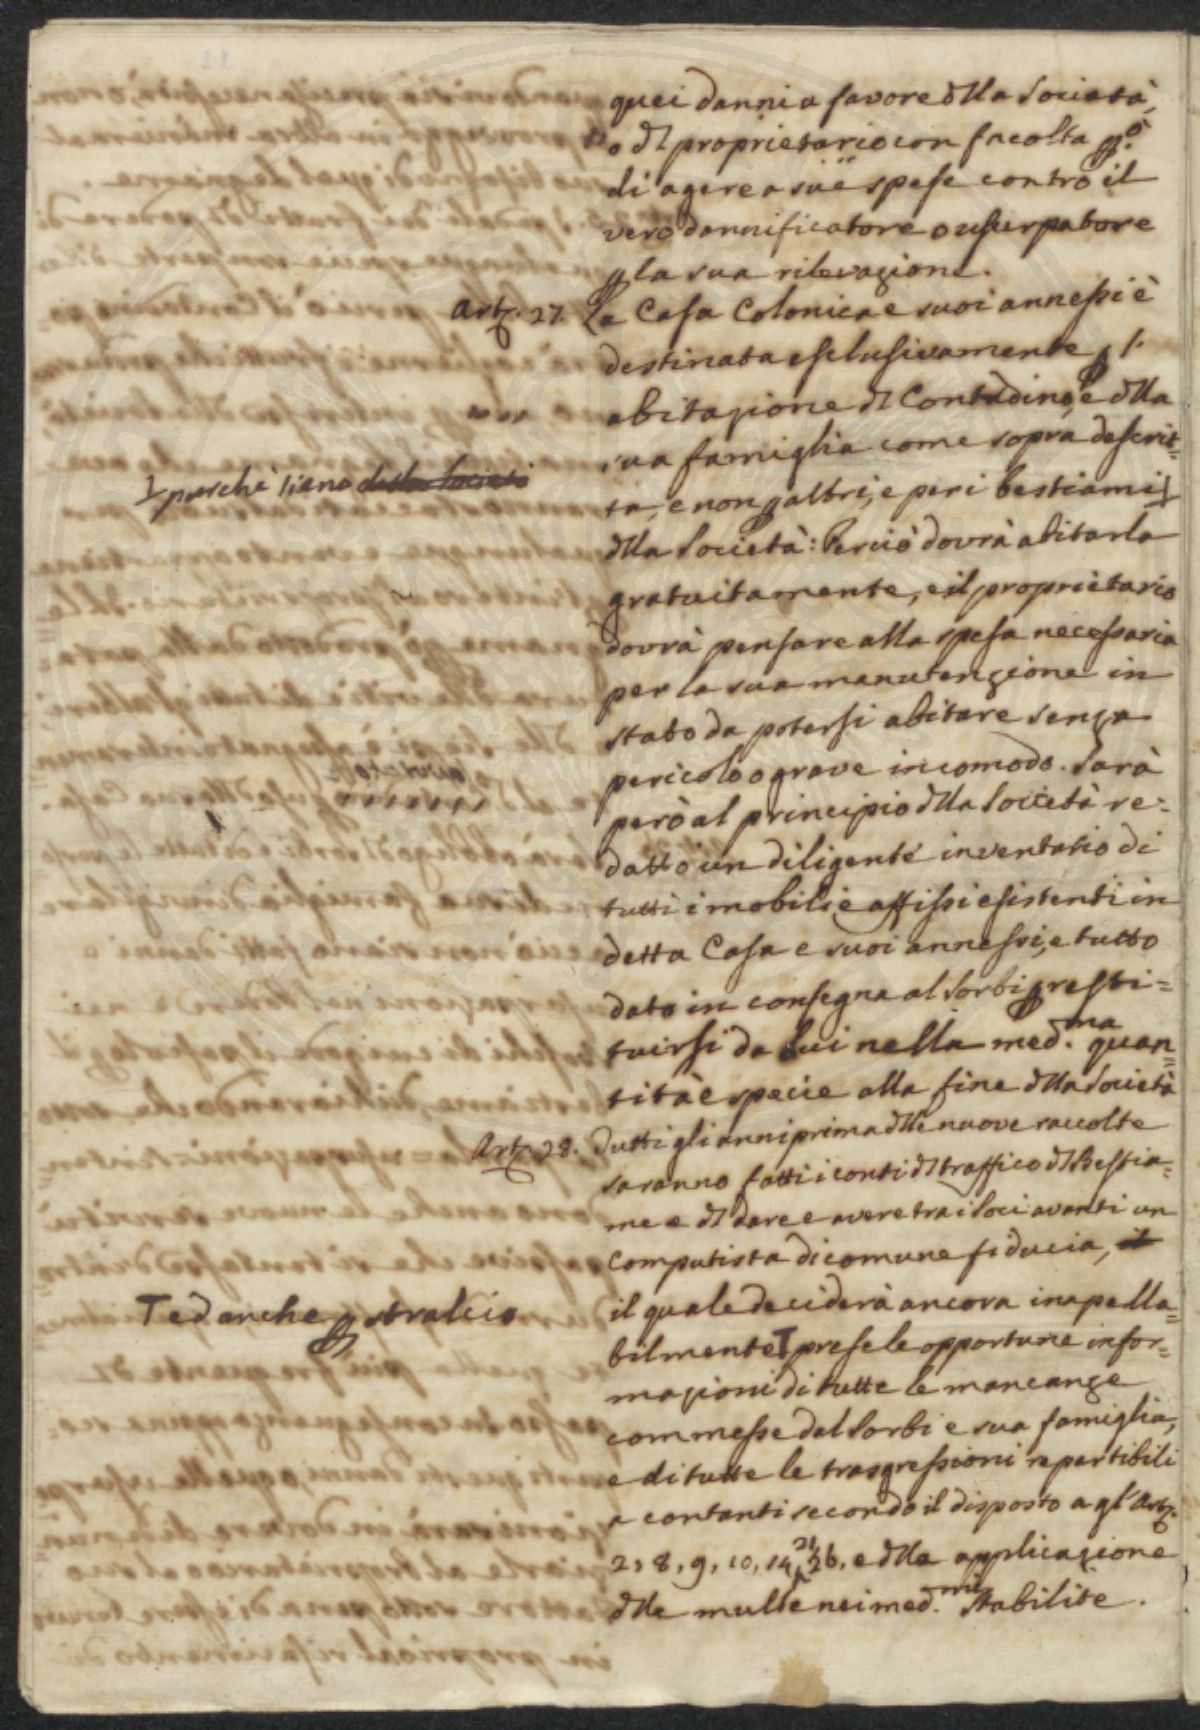 quei danni a favore dlla Società,
o dl proprietario con facolta pò
di agere a sue spese contro il
vero dannificatore o usurpatore
p la sua rilevazione.
Art. 27. La Casa Colonica e suoi annessi è
destinata esclusivamente p l'
abitazione dl Contadino, e dlla
sua famiglia come sopra descrit=
ta, e non p altri, e per i bestiami
perchè siano della Società
dlla Società: Perciò dovrà abitarla
gratuitamente, e il proprietario
dovrà pensare alla spesa necessaria
per la sua manutenzione in
stato da potersi abitare senza
pericolo o grave incomodo. Sarà
però al principio dlla Società re=
datto un diligente inventario di
tutti i mobili e affissi esistenti in
detta Casa e suoi annessi, e tutto
dato in consegna al Sorbi p resti=
tuirsi da lui nella med.ma quan=
tità e specie alla fine dlla Società
Art. 28. Tutti gli anni prima dlle nuove raccolte
saranno fatti i conti dl traffico dl Bestia=
me e dl dare e avere tra i Soci avanti un
Computista di comune fiducia, il
il quale deciderà ancora inapella=
T ed anche p stralcio
bilmente T prese le opportune infor=
mazioni di tutte le mancanze
commesse dal Sorbi e sua famiglia,
e di tutte le trasgressioni repartibili
a contanti secondo il disposto a gl'Art.
2, 8, 9, 10, 14, 21, 26. e dlla applicazione
dlle multe nei med.mi stabilite.